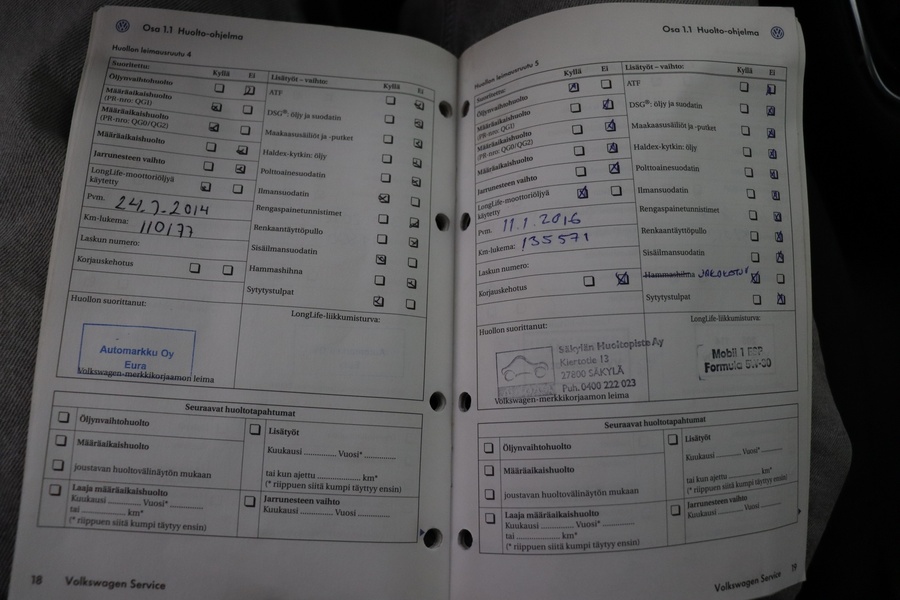 Osa 1.1 Huolto-ohjelma
Huollon leimausruutu 4
Suoritettu:
Kyllä Ei
Öljynvaihtohuolto
Määräaikaishuolto
(PR-nro: QG1)
Määräaikaishuolto
(PR-nro: QG0/QG2)
Määräaikaishuolto
Jarrunesteen vaihto
LongLife-moottoriöljyä
käytetty
Pvm. 24.7.2014
Km-lukema: 110177
Laskun numero:
Korjauskehotus
Lisätyöt – vaihto:
Kyllä Ei
ATF
DSG®: öljy ja suodatin
Maakaasusäiliöt ja -putket
Haldex-kytkin: öljy
Polttoainesuodatin
Ilmansuodatin
Rengaspainetunnistimet
Renkaantäyttöpullo
Sisäilmansuodatin
Hammashihna
Sytytystulpat
Huollon suorittanut:
Automarkku Oy
Eura
Volkswagen-merkkikorjaamon leima
LongLife-liikkumisturva:
Seuraavat huoltotapahtumat
Öljynvaihtohuolto
Määräaikaishuolto
joustavan huoltovälinäytön mukaan
Laaja määräaikaishuolto
Kuukausi ............ Vuosi* ............
tai ............ km*
(* riippuen siitä kumpi täytyy ensin)
Lisätyöt
Kuukausi ............ Vuosi* ............
tai kun ajettu ............ km*
(* riippuen siitä kumpi täytyy ensin)
Jarrunesteen vaihto
Kuukausi ............ Vuosi ............
18 Volkswagen Service
Osa 1.1 Huolto-ohjelma
Huollon leimausruutu 5
Suoritettu:
Kyllä Ei
Öljynvaihtohuolto
Määräaikaishuolto
(PR-nro: QG1)
Määräaikaishuolto
(PR-nro: QG0/QG2)
Määräaikaishuolto
Jarrunesteen vaihto
LongLife-moottoriöljyä
käytetty
Pvm. 11.1.2016
Km-lukema: 135571
Laskun numero:
Korjauskehotus
Lisätyöt – vaihto:
Kyllä Ei
ATF
DSG®: öljy ja suodatin
Maakaasusäiliöt ja -putket
Haldex-kytkin: öljy
Polttoainesuodatin
Ilmansuodatin
Rengaspainetunnistimet
Renkaantäyttöpullo
Sisäilmansuodatin
Hammashihna
Sytytystulpat
Huollon suorittanut:
Säkylän Huoltopiste Ay
Kiertotie 13
27800 SÄKYLÄ
Puh. 0400 222 023
Volkswagen-merkkikorjaamon leima
LongLife-liikkumisturva:
Mobil 1 ESP
Formula 5W-30
Seuraavat huoltotapahtumat
Öljynvaihtohuolto
Määräaikaishuolto
joustavan huoltovälinäytön mukaan
Laaja määräaikaishuolto
Kuukausi ............ Vuosi* ............
tai ............ km*
(* riippuen siitä kumpi täytyy ensin)
Lisätyöt
Kuukausi ............ Vuosi* ............
tai kun ajettu ............ km*
(* riippuen siitä kumpi täytyy ensin)
Jarrunesteen vaihto
Kuukausi ............ Vuosi ............
Volkswagen Service 19